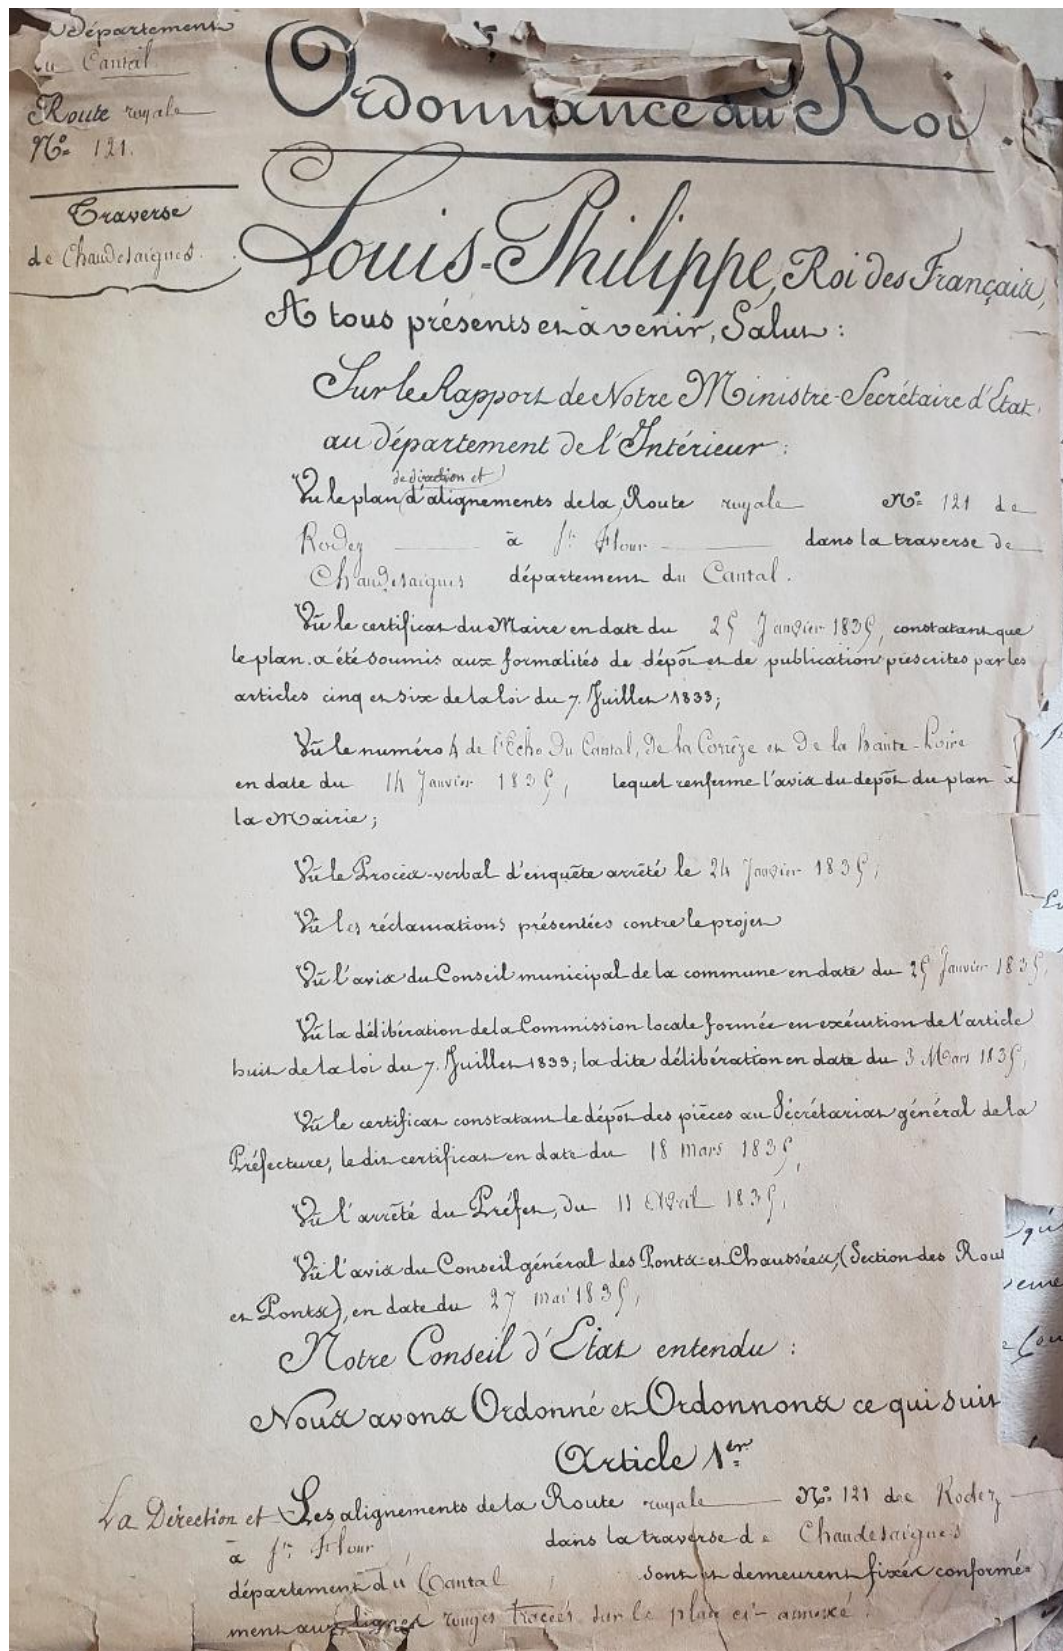 Département
du Cantal
Route royale
N.º 121.
Traverse
de Chaudesaigues.
Ordonnance du Roi.
Louis-Philippe, Roi des Français,
A tous présents et à venir, Salut :
Sur le Rapport de Notre Ministre-Secrétaire d'Etat
au département de l'Intérieur :
de direction et
Vu le plan d'alignements de la Route royale N.º 121 de
Rodez à St. Flour dans la traverse de
Chaudesaigues département du Cantal.
Vu le certificat du Maire en date du 25 Janvier 1835, constatant que
le plan a été soumis aux formalités de dépôt et de publication prescrites par les
articles cinq et six de la loi du 7. Juillet 1833;
Vu le numéro 4 de l'Echo du Cantal, de la Corrèze et de la haute-Loire
en date du 14 Janvier 1835, lequel renferme l'avis du depôt du plan à
la Mairie;
Vu le Procès-verbal d'enquête arrêté le 24 Janvier 1835;
Vu les réclamations présentées contre le projet
Vu l'avis du Conseil municipal de la commune en date du 25 Janvier 1835,
Vu la délibération de la Commission locale formée en exécution de l'article
huit de la loi du 7. Juillet 1833; la dite délibération en date du 3 Mars 1835,
Vu le certificat constatant le dépôt des pièces au Sécrétariat général de la
Préfecture, le dit certificat en date du 18 mars 1835,
Vu l'arrêté du Préfet, du 11 Avril 1835,
Vu l'avis du Conseil général des Ponts-et-Chaussées, (Section des Rout
et Ponts), en date du 27 mai 1835,
Notre Conseil d'Etat entendu :
Nous avons Ordonné et Ordonnons ce qui suit
Article 1er
La Direction et Les alignements de la Route royale N.º 121 de Rodez
à St. Flour dans la traverse de Chaudesaigues
département du Cantal, sont et demeurent fixés conformé-
ment aux lignes rouges tracées sur le plan ci-annexé.